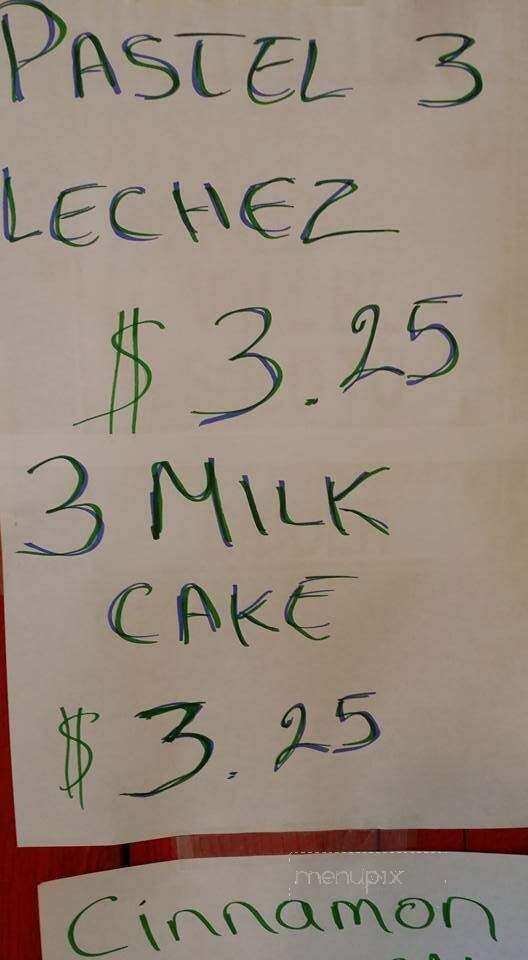 PASTEL 3
LECHEZ
$3.25
3 MILK
CAKE
$3.25
menupix
Cinnamon